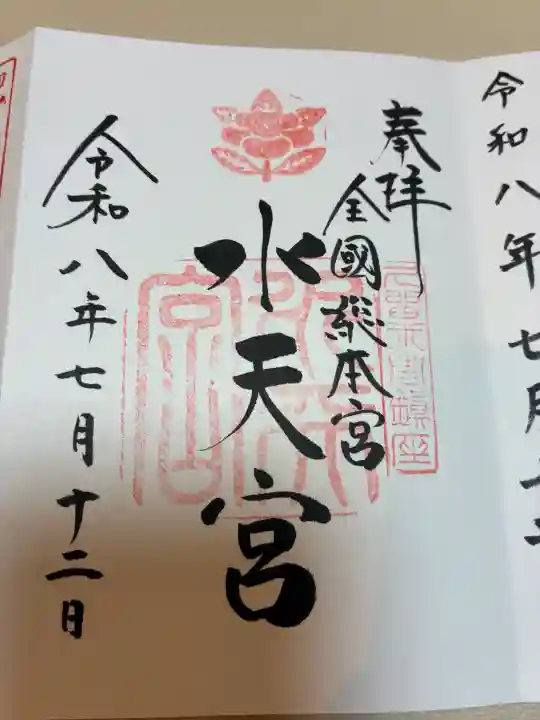 令和八年七月十二
奉拝
全國総本宮
水天宮
令和八年七月十二日